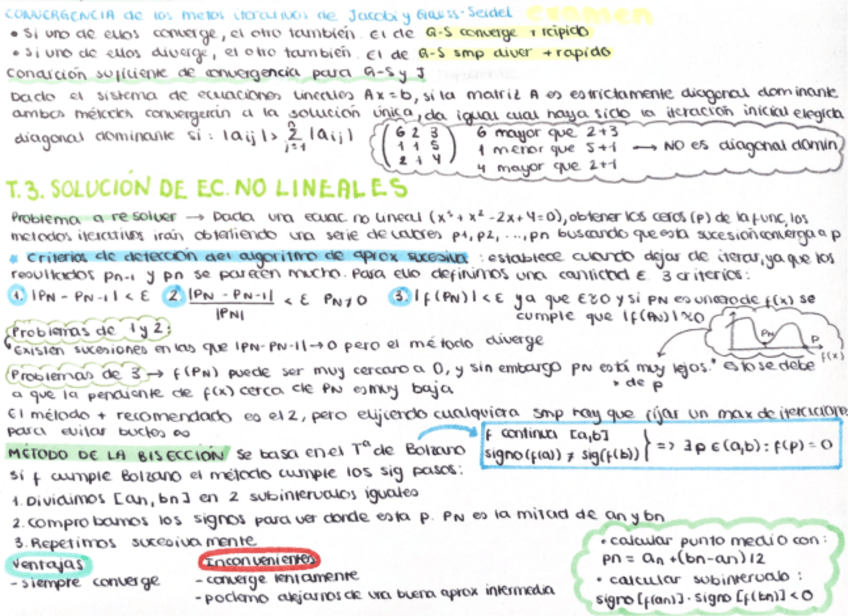 CONVERGENCIA de los metos iterativos de Jacobi y Gauss-Seidel examen
• Si uno de ellos converge, el otro también. El de G-S converge + rápido
• Si uno de ellos diverge, el otro también. El de G-S smp diver + rapido
Condición suficiente de convergencia para G-S y J
Dado el sistema de ecuaciones lineales Ax=b, si la matriz A es estrictamente diagonal dominante
ambos métodos convergerán a la solución única, da igual cual haya sido la iteración inicial elegida
diagonal dominante si: |aij| > Σ |aij|
n
j=1
6 2 3
1 1 5
2 1 4
6 mayor que 2+3
1 menor que 5+1 → NO es diagonal domin
4 mayor que 2+1
T.3. SOLUCIÓN DE EC. NO LINEALES
Problema a resolver → Dada una ecuac. no lineal (x³ + x² - 2x + 4 = 0), obtener los ceros (p) de la func, los
metodos iterativos irán obteniendo una serie de valores p1, p2, ..., pn buscando que esta sucesión converga a p
* Criterios de detección del algoritmo de aprox sucesiva: establece cuando dejar de iterar, ya que los
resultados pn-1 y pn se parecen mucho. Para ello definimos una cantidad ε 3 criterios:
1. |PN - PN-1| < ε 2. |PN - PN-1| / |PN| < ε PN≠0 3. |f(PN)| < ε ya que ε≈0 y si PN es un cero de f(x) se
cumple que |f(PN)|≈0
Problemas de 1 y 2:
Existen sucesiones en las que |PN-PN-1|→0 pero el método diverge
PN P f(x)
Problemas de 3 → f(PN) puede ser muy cercano a 0, y sin embargo PN está muy lejos.* esto se debe
* de p
a que la pendiente de f(x) cerca de PN es muy baja
El método + recomendado es el 2, pero elijiendo cualquiera smp hay que fijar un max de iteraciones
para evitar bucles ∞
MÉTODO DE LA BISECCIÓN Se basa en el Tª de Bolzano
f continua [a,b]
signo(f(a)) ≠ sig(f(b)) } => ∃ p ∈ (a,b) : f(p) = 0
Si f cumple Bolzano el método cumple los sig pasos:
1. Dividimos [an, bn] en 2 subintervalos iguales
2. comprobamos los signos para ver donde esta p. PN es la mitad de an y bn
3. Repetimos sucesivamente
Ventajas
- siempre converge
Inconvenientes
- converge lentamente
- podemo alejarnos de una buena aprox intermedia
• calcular punto medio con:
pn = an + (bn-an)/2
• calcular subintervalo:
signo[f(an)] · signo[f(bn)] < 0